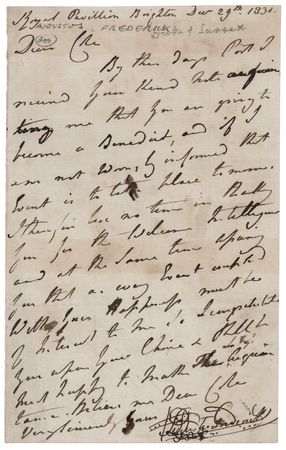 Royal Pavillion Brighton Decr 29th 1830.
AUGUSTUS FREDERICK Duke of Sussex
Dear Cole
By this days Post I
received your kind note acquain
ting me that you are going to
become a Benedict, and if I
am not wrongly informed that
Event is to take place to morrow.
I therefore lose no time in thanking
you for the Welcome Intelligence
and at the same time assuring
you that as every Event connected
With your Happiness must be
of Interest to me, I congratulate
you upon your Choice & shall be
most happy to make The Acquain
tance. Believe me Dear Cole
Very sincerely yours